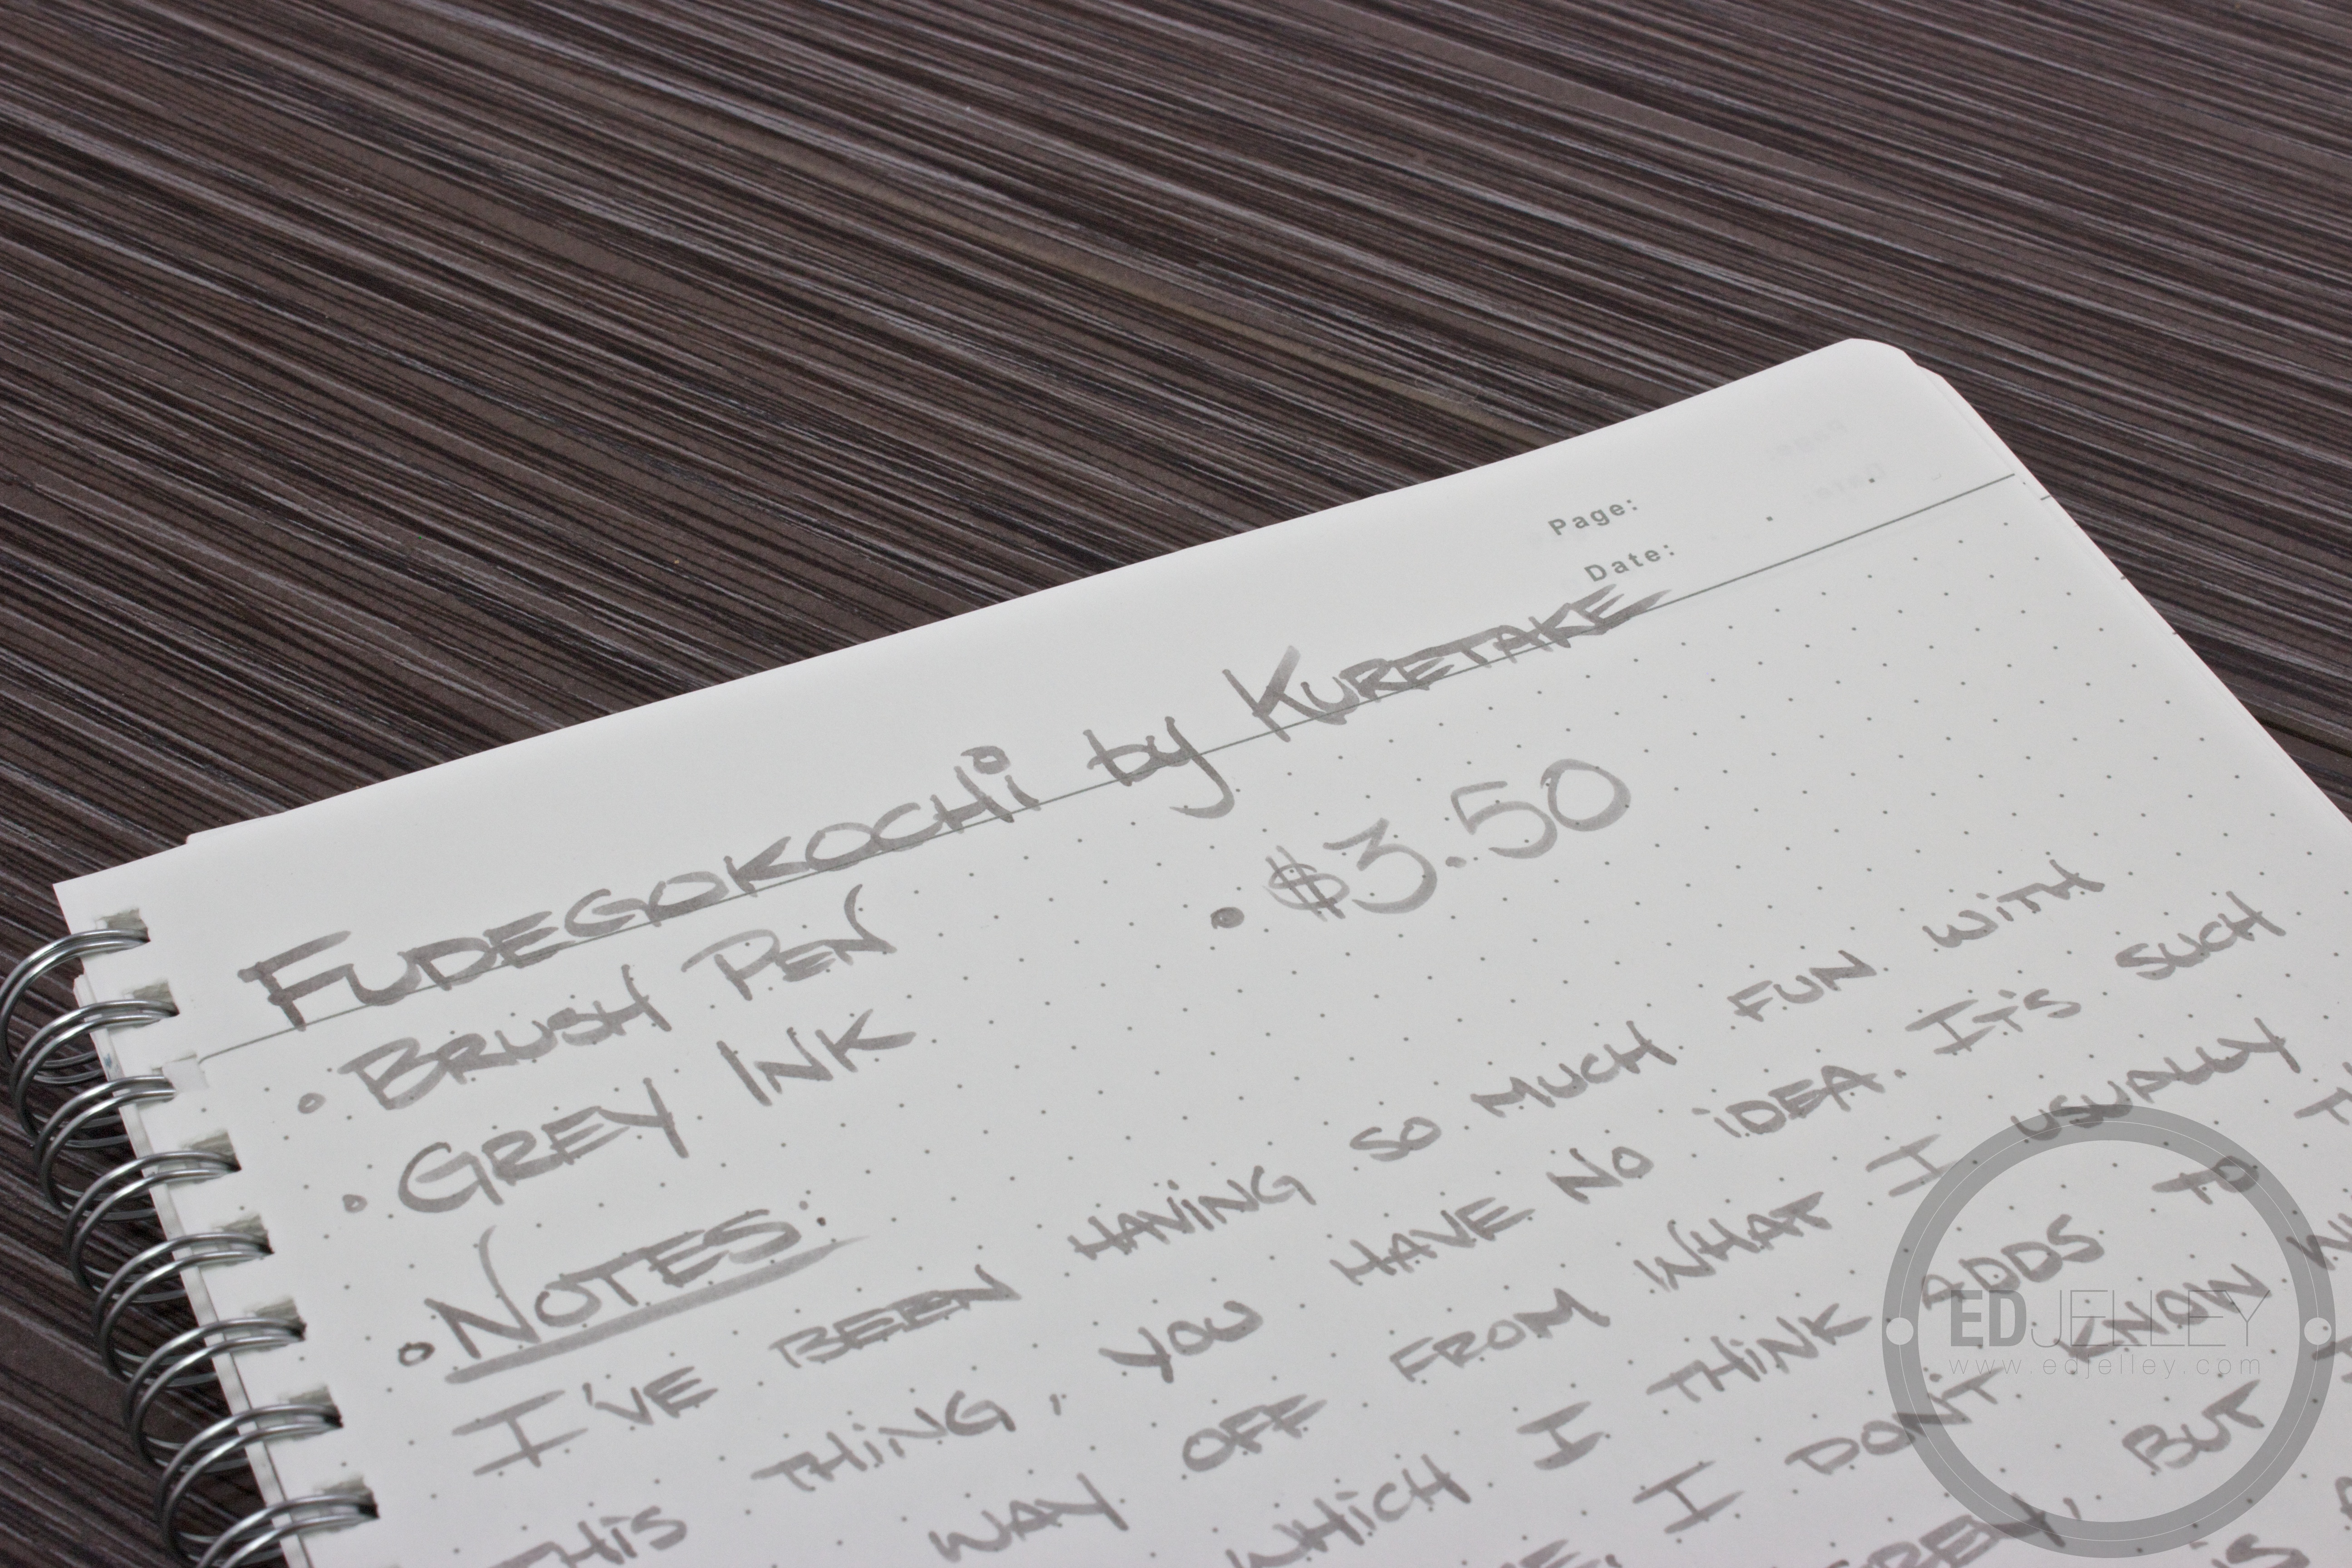 Page:
Date:
FUDEGOKOCHi by KURETAKE
• BRUSH PEN • $3.50
• GREY INK
• NOTES:
I'VE BEEN HAViNG SO MUCH FUN WiTH
THiS THiNG, YOU HAVE NO iDEA. IT'S SUCH
WAY OFF FROM WHAT I USUALLY
WHiCH I THiNK ADDS
I DON'T KNOW
GREY, BUT
EDJELLEY
www.edjelley.com